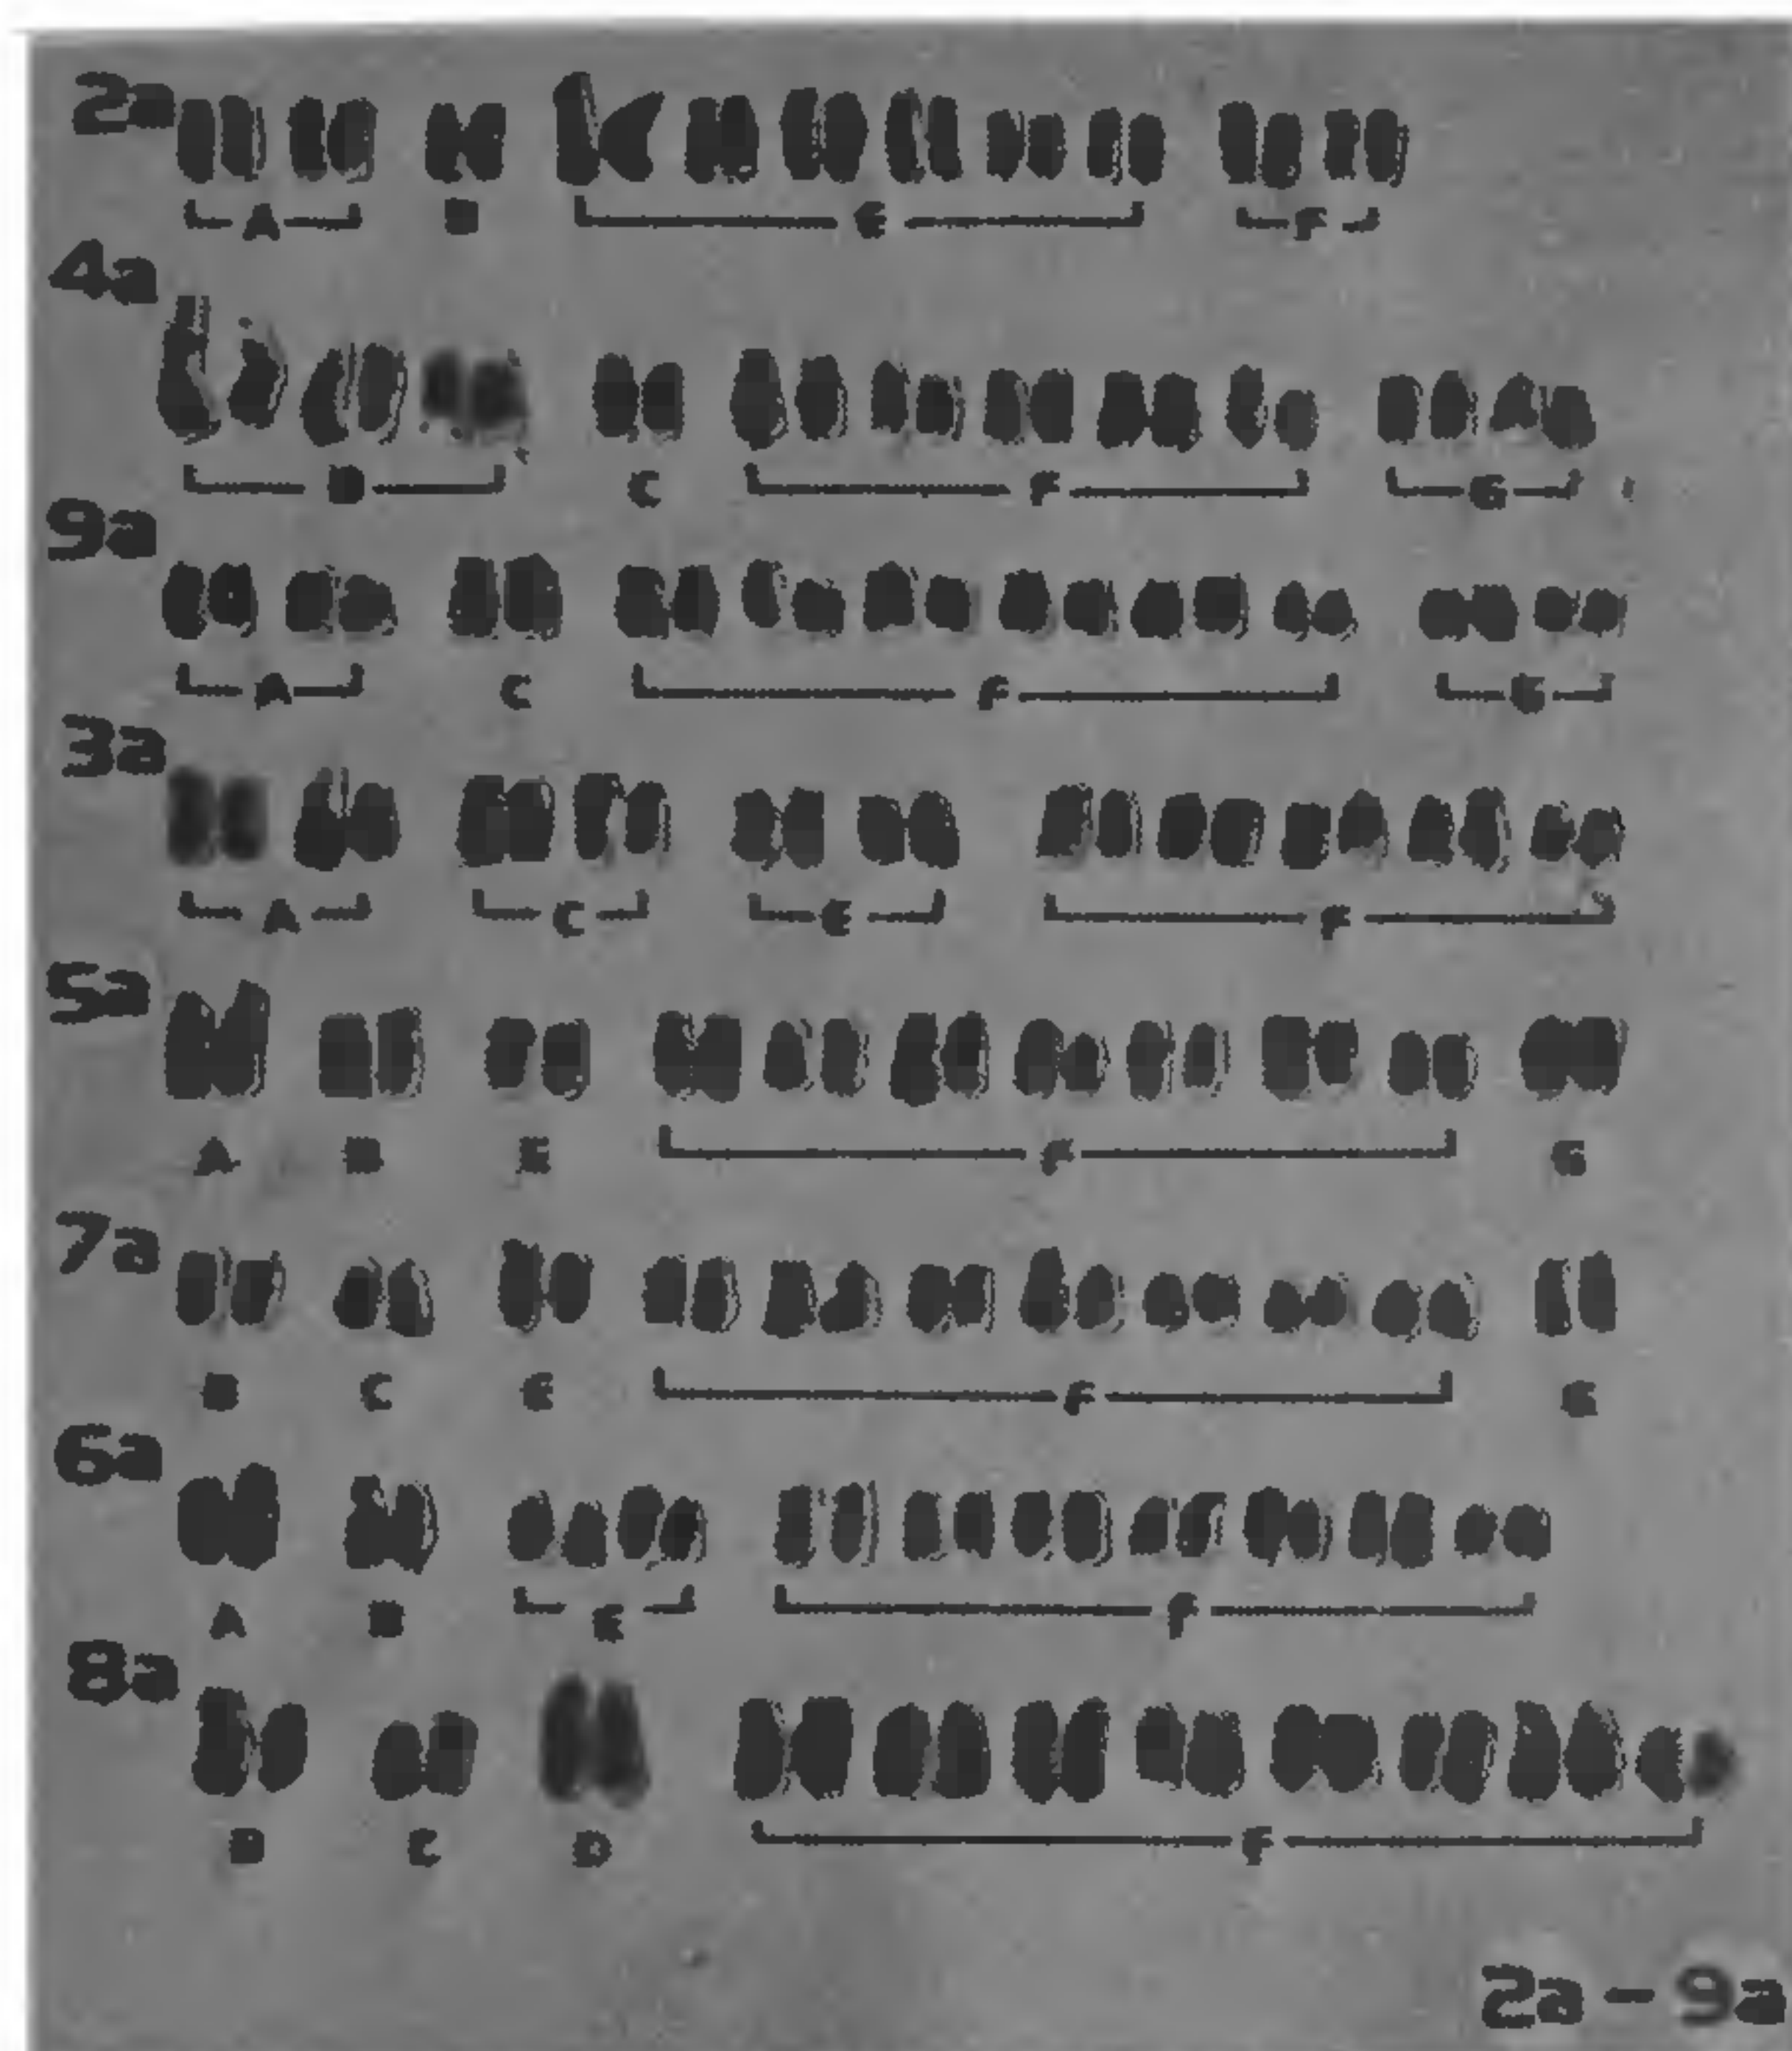 2a
A B E F
4a
B C F G
9a
A C F G
3a
A C E F
5a
A B E F G
7a
B C E F G
6a
A B E F
8a
B C D F
2a – 9a